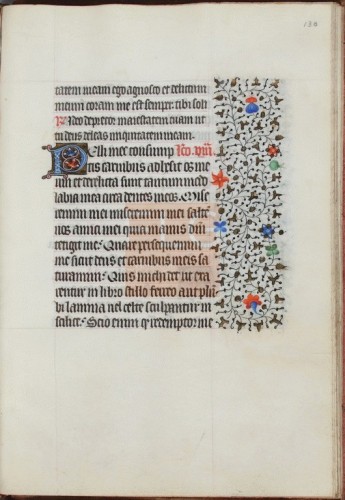 138
tatem meam ego agnosco et delictum
meum coram me est semper. tibi soli
Deo deprecor maiestatem tuam ut
tu deus deleas iniquitatem meam.
Pelli mee consumptis Leo. viii.
tis carnibus adhesit os me
um et derelicta sunt tantum mod
labia mea circa dentes meos. Mise
remini mei miseremini mei salte
vos amici mei quia manus dni
tetigit me. Quare persequemini
me sicut deus et carnibus meis sa
turamini. Quis michi det ut exa
rentur in libro stilo ferreo aut plu
bi lamina vel celte sculpantur in
scilice. Scio enim q redemptor me